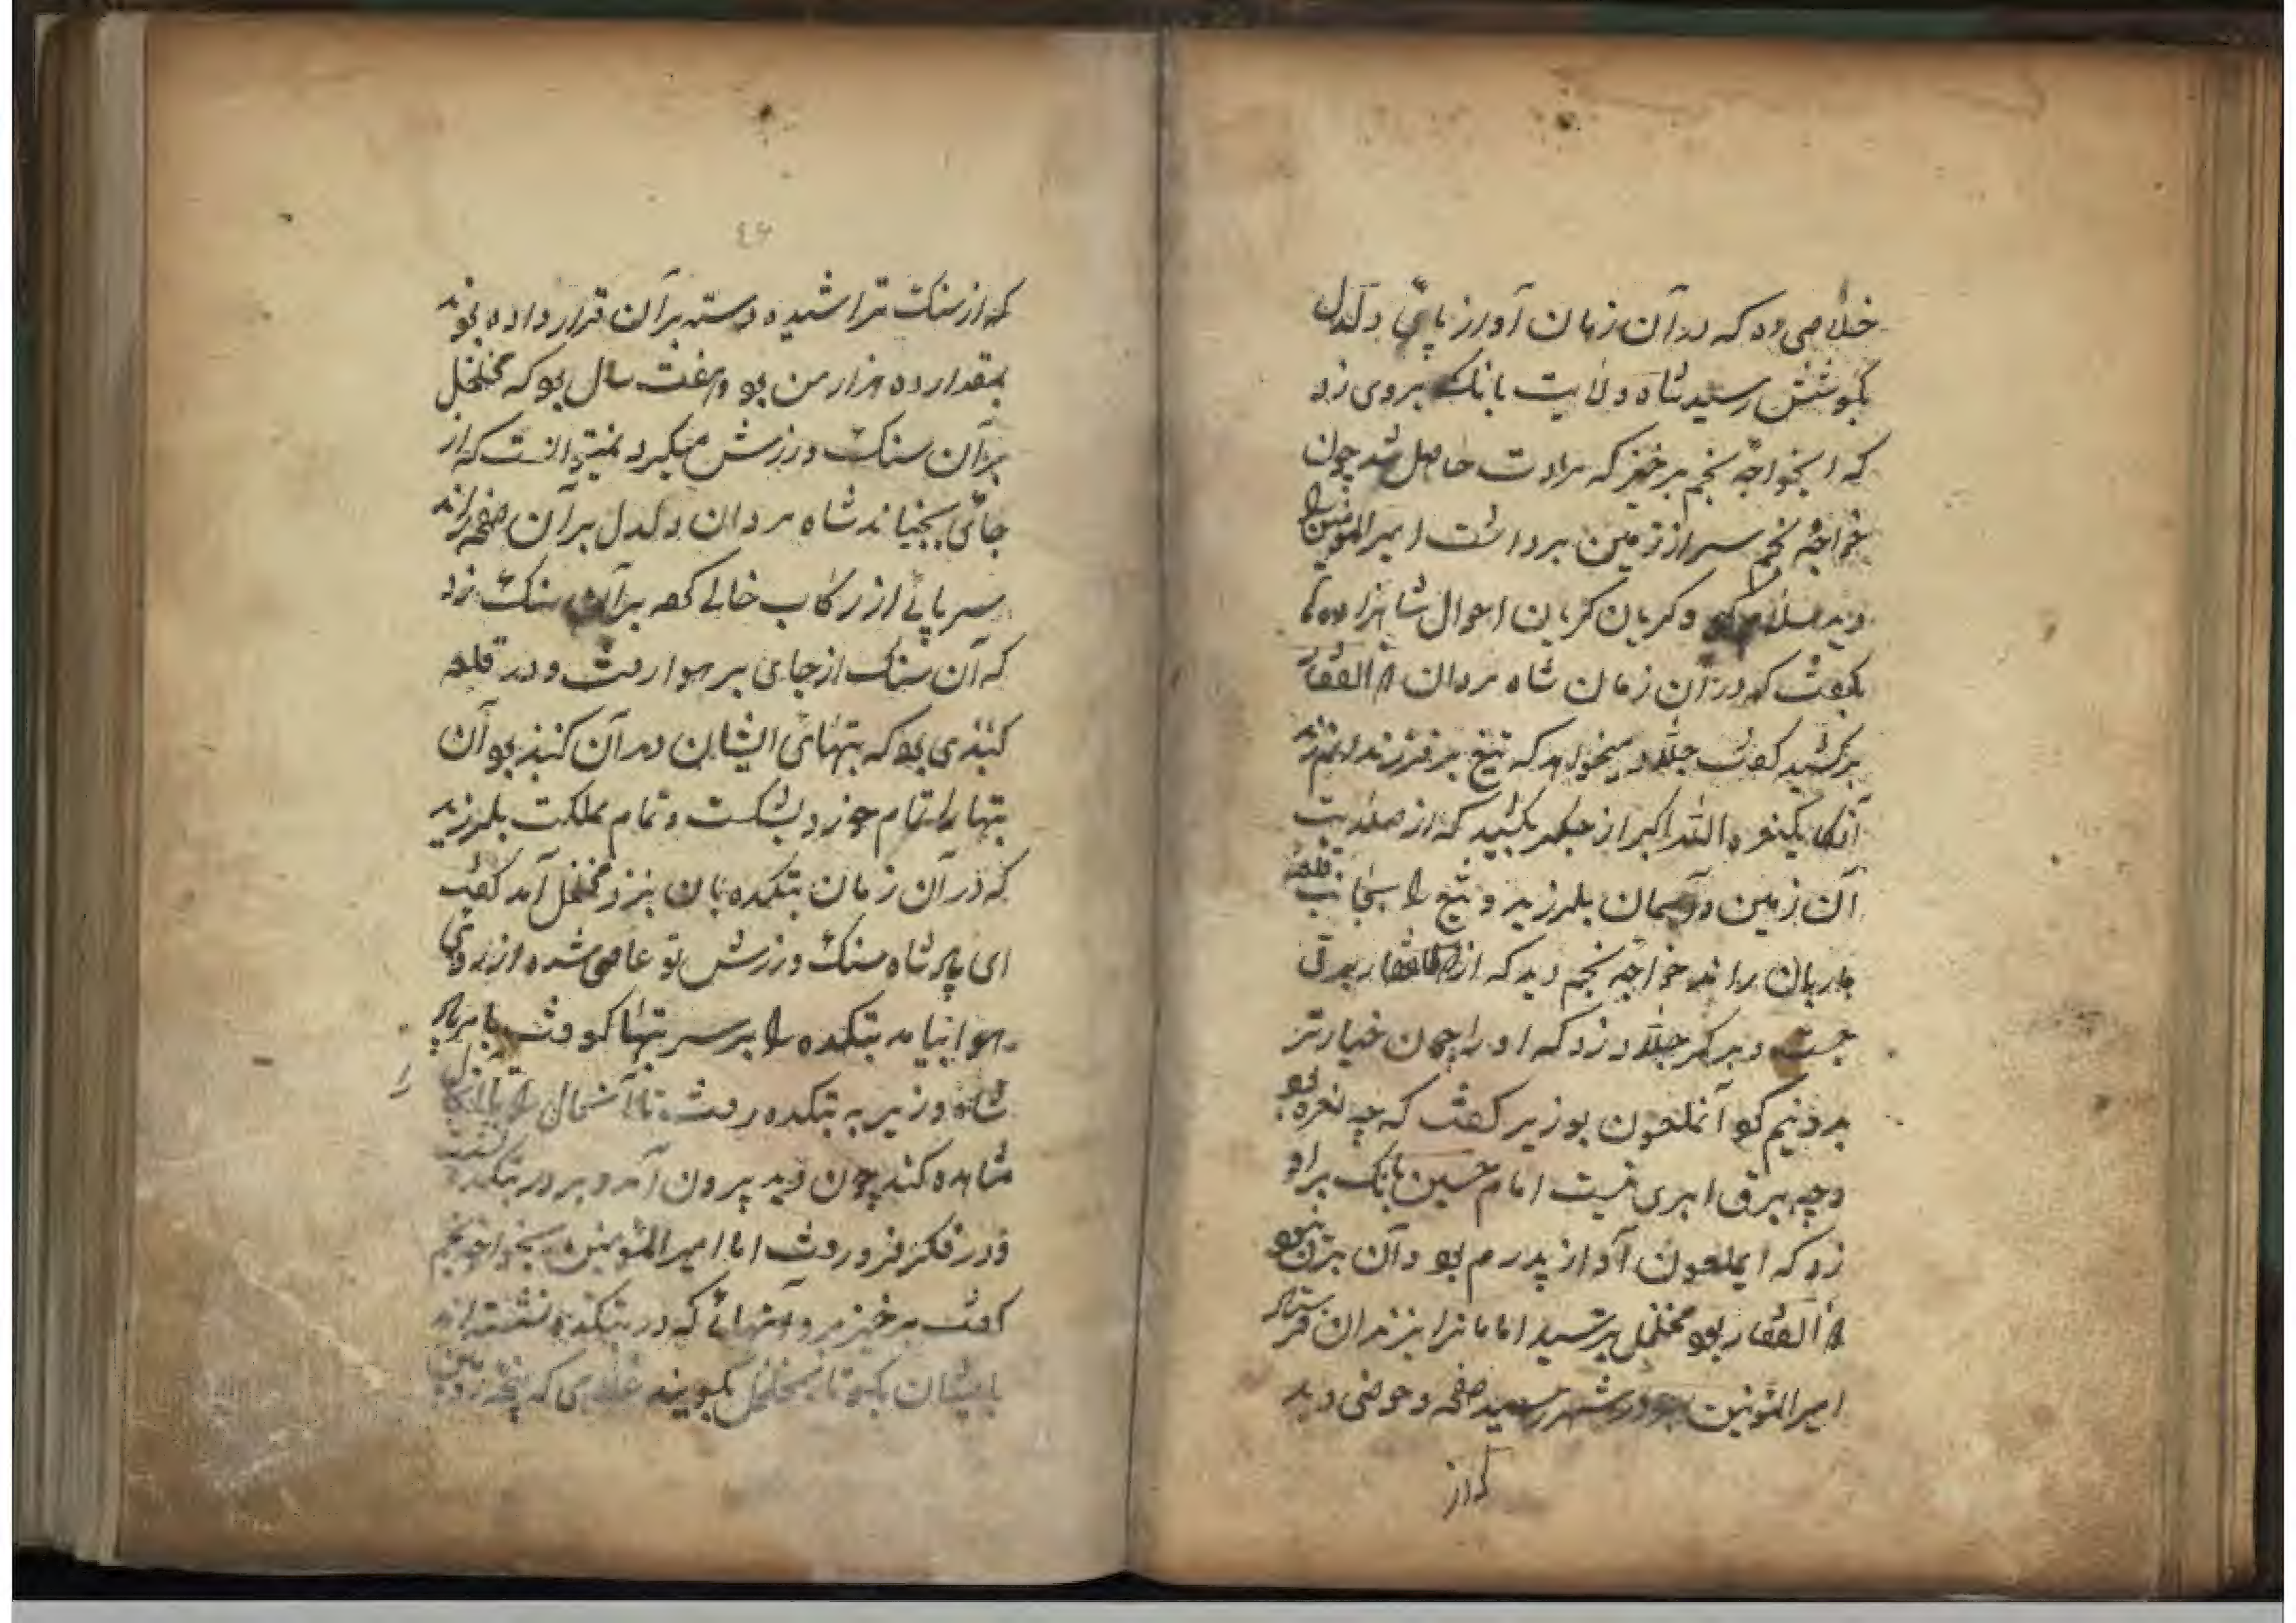 خلاصی ده که در آن زمان آواز پای دلدل
بگوشش رسید شاه ولایت بانک بروی زد
که ایخواجه نجم برخیز که مرادت حاصل شد چون
خواجه نجم سر از زمین برداشت امیرالمؤمنین را
دید سلام کرد و کریان کریان احوال شاهزاده‌ها
بکفت که در آن زمان شاه مردان ذوالفقار
برکشید کفت جلاد میخواهد که تیغ بر فرزندانم زند
آنکاه یکنعره الله اکبر از جکر بکشید که از صلابت
آن زمین و آسمان بلرزید و تیغ را بجانب قلعه
باربان راند خواجه نجم دید که از ذوالفقار برقی
جست و بر کمر جلاد زد که او را چون خیار تر
بدونیم کرد آنملعون بوزیر کفت که چه نعره بود
و چه برق ابری نیست امام حسین بانک بر او
زد که ایملعون آواز پدرم بود و آن برق
ذوالفقار بود مخلخل بترسید امامانرا بزندان فرستاد
امیرالمؤمنین چو در شهر رسید صفه و حوضی دید
که از
٤٦
که از سنک تراشیده دسته بر آن قرار داده بودند
بمقدار ده هزار من بود و هفت سال بود که مخلخل
بر آن سنک ورزش میکرد نمیتوانست که از
جای بجنباند شاه مردان دلدل بر آن صفه راند
سر پائی از رکاب خالی کرد بر آن سنک زد
که آن سنک از جای بر هوا رفت و در قلعه
کنبذی بود که بتهای ایشان در آن کنبذ بود آن
بتها را تمام خورد بشکست و تمام مملکت بلرزید
که در آن زمان بتکده بان نزد مخلخل آمد کفت
ای پادشاه سنک ورزش تو عاصی شده از روی
هوا بیامد بتکده را بر سر بتها کوفت
شاه و وزیر به بتکده رفت تا آنحال را
مشاهده کند چون دید بیرون آمد و بر در بتکده
و در فکر فرو رفت اما امیرالمؤمنین بخواجه نجم
کفت برخیز برو آنهائی که در بتکده نشسته‌اند
بایشان بکو تا بمخلخل بکویند غلامی که